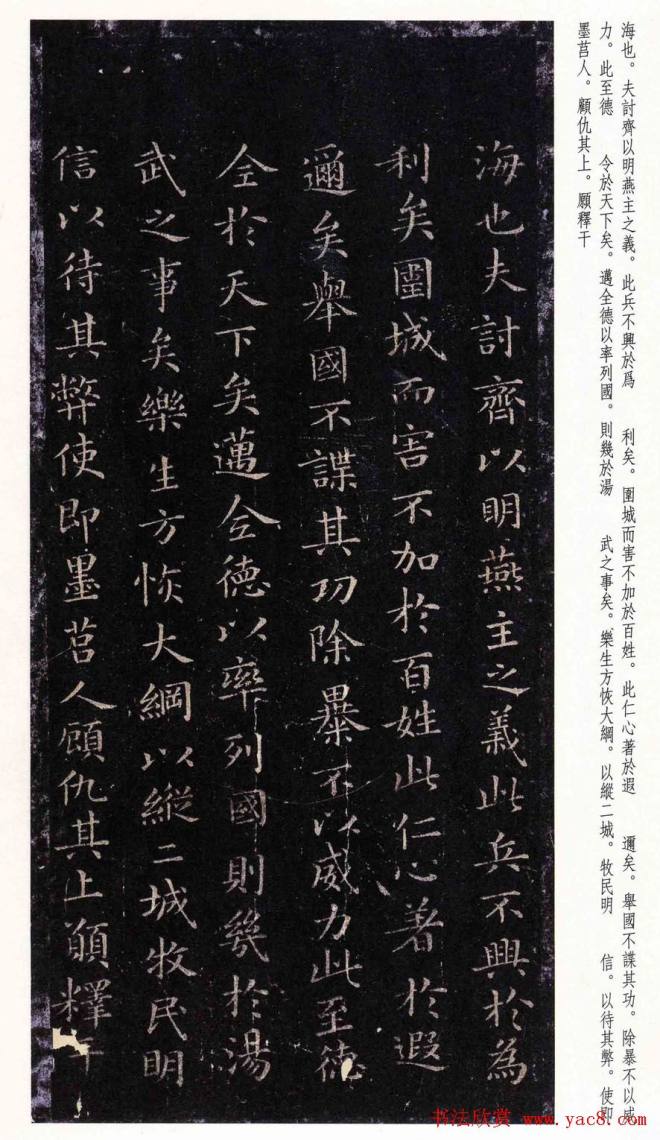 海也。夫討齊以明燕主之義。此兵不興於爲　利矣。圍城而害不加於百姓。此仁心著於遐　邇矣。舉國不諜其功。除暴不以威
力。此至德　令於天下矣。邁全德以率列國。則幾於湯　武之事矣。樂生方恢大綱。以縱二城。牧民明　信。以待其弊。使即
墨莒人。顧仇其上。願釋干
海也夫討齊以明燕主之義此兵不興於為
利矣圍城而害不加於百姓此仁心著於遐
邇矣舉國不謀其功除暴不以威力此至德
全於天下矣邁全德以率列國則幾於湯
武之事矣樂生方恢大綱以縱二城牧民明
信以待其弊使即墨莒人顧仇其上願釋干
书法欣赏 www.yac8.com